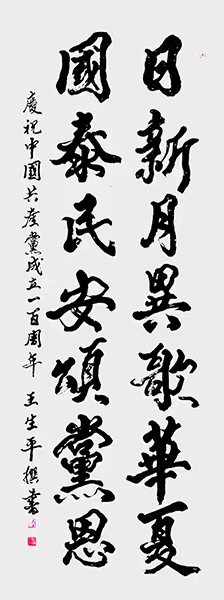 日新月異歌華夏
國泰民安頌黨恩
慶祝中國共產黨成立一百周年 王生平撰書